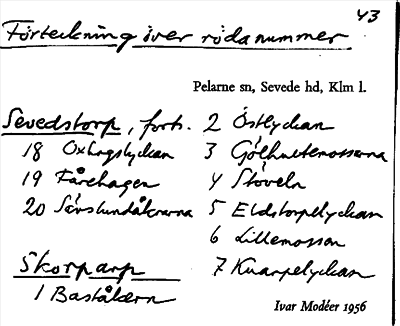 43
Förteckning över röda nummer
Pelarne sn, Sevede hd, Klm l.
Sevedstorp, forts.
18 Oxhagslyckan
19 Fårehagen
20 Sävslundåkrarna
Skorparp
1 Baståkern
2 Östlyckan
3 Gölhultemossarna
4 Stöveln
5 Eldstorpelyckan
6 Lillemossen
7 Kvarpelyckan
Ivar Modéer 1956